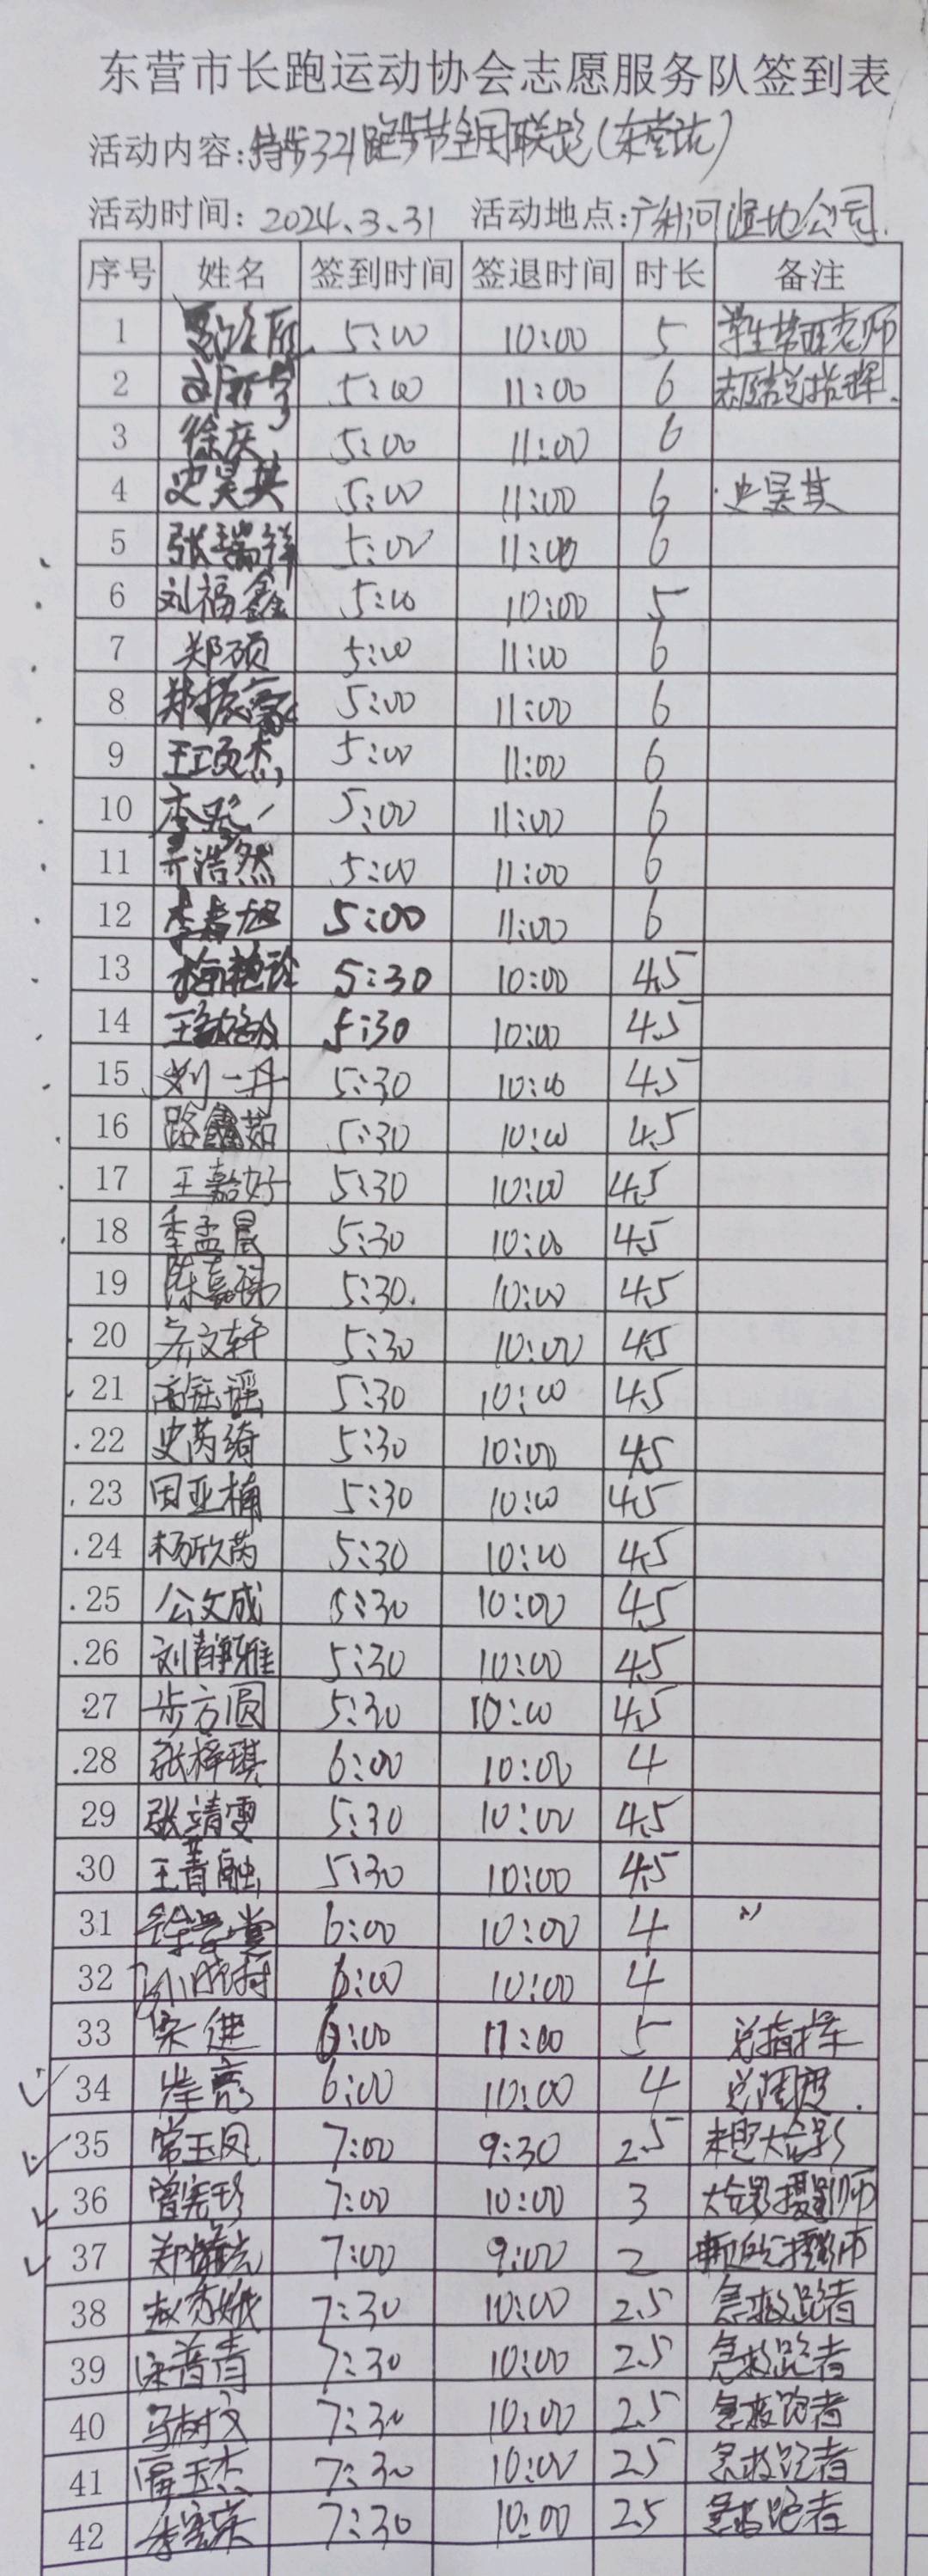 东营市长跑运动协会志愿服务队签到表
活动内容:特步321跑步节全国联跑(东营站)
活动时间: 2024.3.31 活动地点:广利河湿地公园.
序号 姓名 签到时间 签退时间 时长 备注
1 5:00 10:00 5 学生带队老师
2 5:00 11:00 6 志愿者总指挥.
3 徐庆 5:00 11:00 6
4 史昊其 5:00 11:00 6 史昊其
5 张瑞祥 5:00 11:00 6
6 刘福鑫 5:00 10:00 5
7 郑硕 5:00 11:00 6
8 郑振豪 5:00 11:00 6
9 王项杰 5:00 11:00 6
10 李 5:00 11:00 6
11 浩然 5:00 11:00 6
12 李春旭 5:00 11:00 6
13 梅艳 5:30 10:00 4.5
14 王 5:30 10:00 4.5
15 刘一丹 5:30 10:00 4.5
16 路鑫茹 5:30 10:00 4.5
17 王嘉好 5:30 10:00 4.5
18 季孟晨 5:30 10:00 4.5
19 陈嘉瑞 5:30. 10:00 4.5
20 文轩 5:30 10:00 4.5
21 高钰瑶 5:30 10:00 4.5
22 史芮绮 5:30 10:00 4.5
23 田亚楠 5:30 10:00 4.5
24 杨欣芮 5:30 10:00 4.5
25 公文成 5:30 10:00 4.5
26 刘静雅 5:30 10:00 4.5
27 步方圆 5:30 10:00 4.5
28 张梓琪 6:00 10:00 4
29 张靖雯 5:30 10:00 4.5
30 王青融 5:30 10:00 4.5
31 徐学堂 6:00 10:00 4
32 6:00 10:00 4
33 宋进 6:00 11:00 5 总指挥
34 崔亮 6:00 10:00 4 总调度.
35 常玉凤 7:00 9:30 2.5 大合影
36 曾宪珍 7:00 10:00 3 大合影摄影师
37 郑 7:00 9:00 2 摄影师
38 赵秀娥 7:30 10:00 2.5 急救跑者
39 徐普青 7:30 10:00 2.5 急救跑者
40 马树文 7:30 10:00 2.5 急救跑者
41 高玉杰 7:30 10:00 2.5 急救跑者
42 李 7:30 10:00 2.5 急救跑者